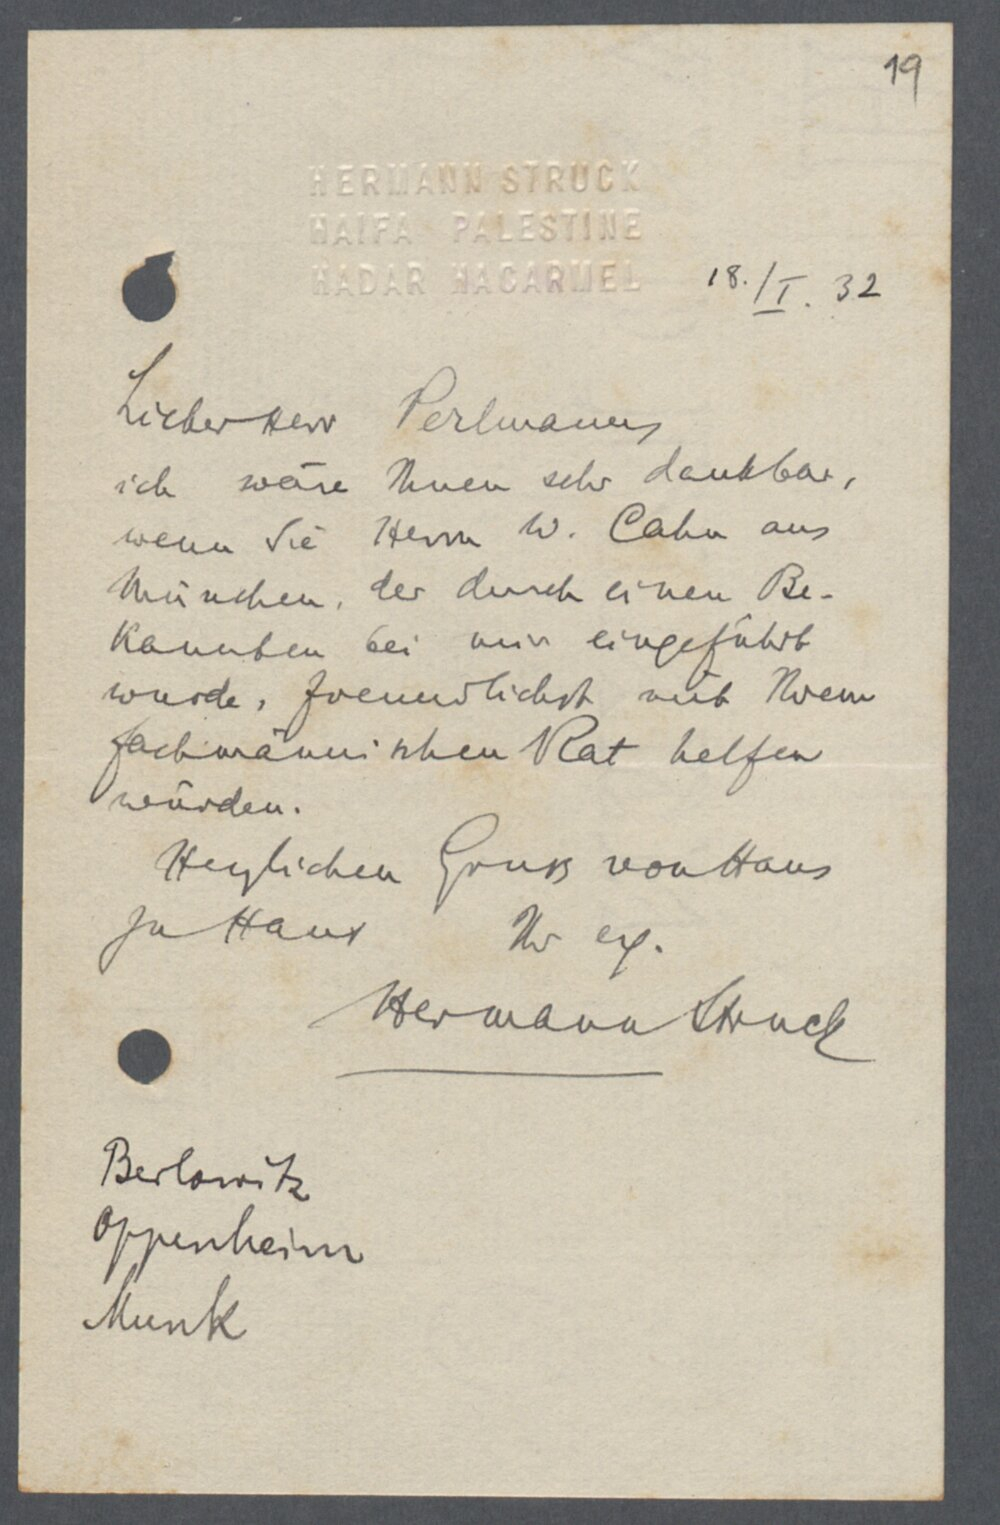 19
HERMANN STRUCK
HAIFA PALESTINE
HADAR HACARMEL
18./I. 32
Lieber Herr Perlmann,
ich wäre Ihnen sehr dankbar,
wenn Sie Herrn W. Cahn aus
München, der durch einen Be-
kannten bei mir eingeführt
wurde, freundlichst mit Ihrem
fachmännischen Rat helfen
würden.
Herzlichen Gruss von Haus
zu Haus Ihr erg.
Hermann Struck
Berlowitz
Oppenheim
Munk